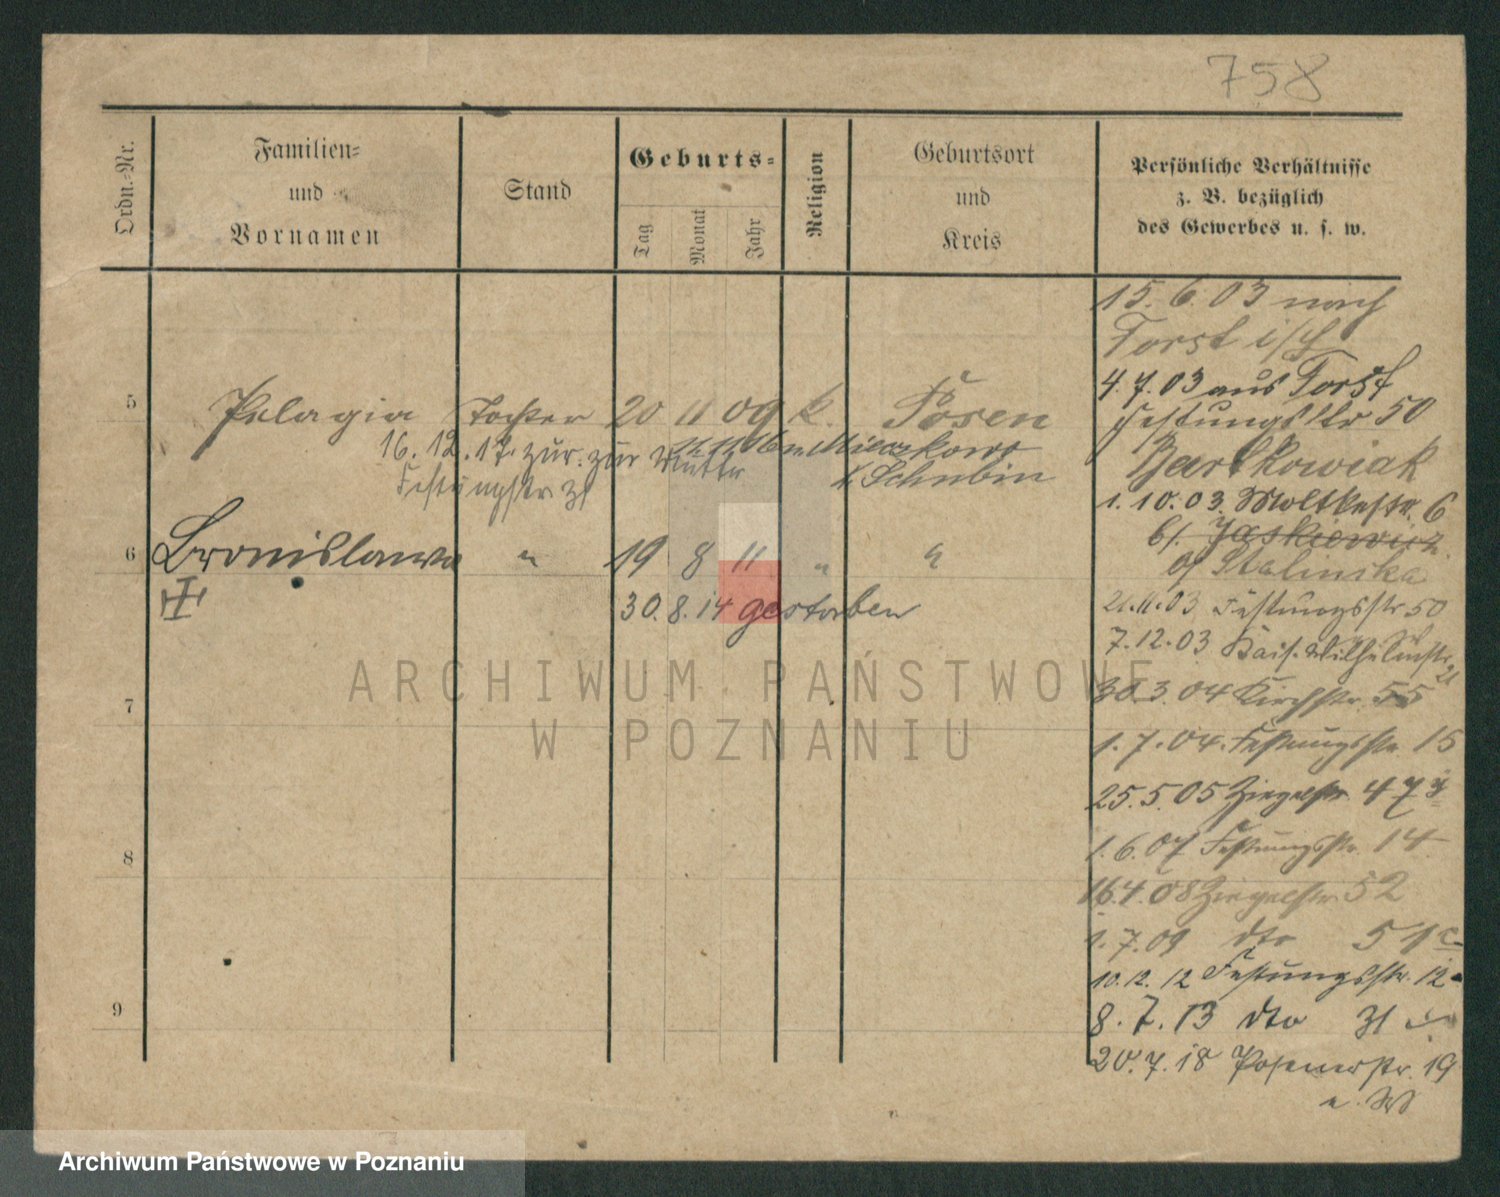 758
Ordn.-Nr.
Familien-
und
Vornamen
Stand
Geburts-
Tag
Monat
Jahr
Religion
Geburtsort
und
Kreis
Persönliche Verhältnisse
z. B. bezüglich
des Gewerbes u. s. w.
5 Pelagia Tochter 20 11 09 k. Posen
16. 12. 17. zur. zur Mutter
Festungstr 31
Mieczkowo
Schubin
6 Bronislawa " 19 8 11 " "
30. 8. 14 gestorben
7
8
9
15. 6. 03 nach
Forst i/L
4. 7. 03 aus Forst
Festungsstr 50
Bartkowiak
1. 10. 03. Moltkestr. 6
b/. Jaskiewicz.
b/ Stalinska
21. 11. 03 Festungsstr 50
7. 12. 03 Kais. Wilhelmstr 21
30. 3. 04 Kirchstr. 55
1. 7. 04. Festungsstr. 15
25. 5. 05 Ziegelstr. 47
1. 6. 07 Festungsstr. 14
16. 4. 08 Ziegelstr. 52
1. 7. 09 dto 51
10. 12. 12 Festungsstr. 12
8. 7. 13 dto 31
20. 7. 18 Posenerstr. 19
ARCHIWUM PAŃSTWOWE
W POZNANIU
Archiwum Państwowe w Poznaniu